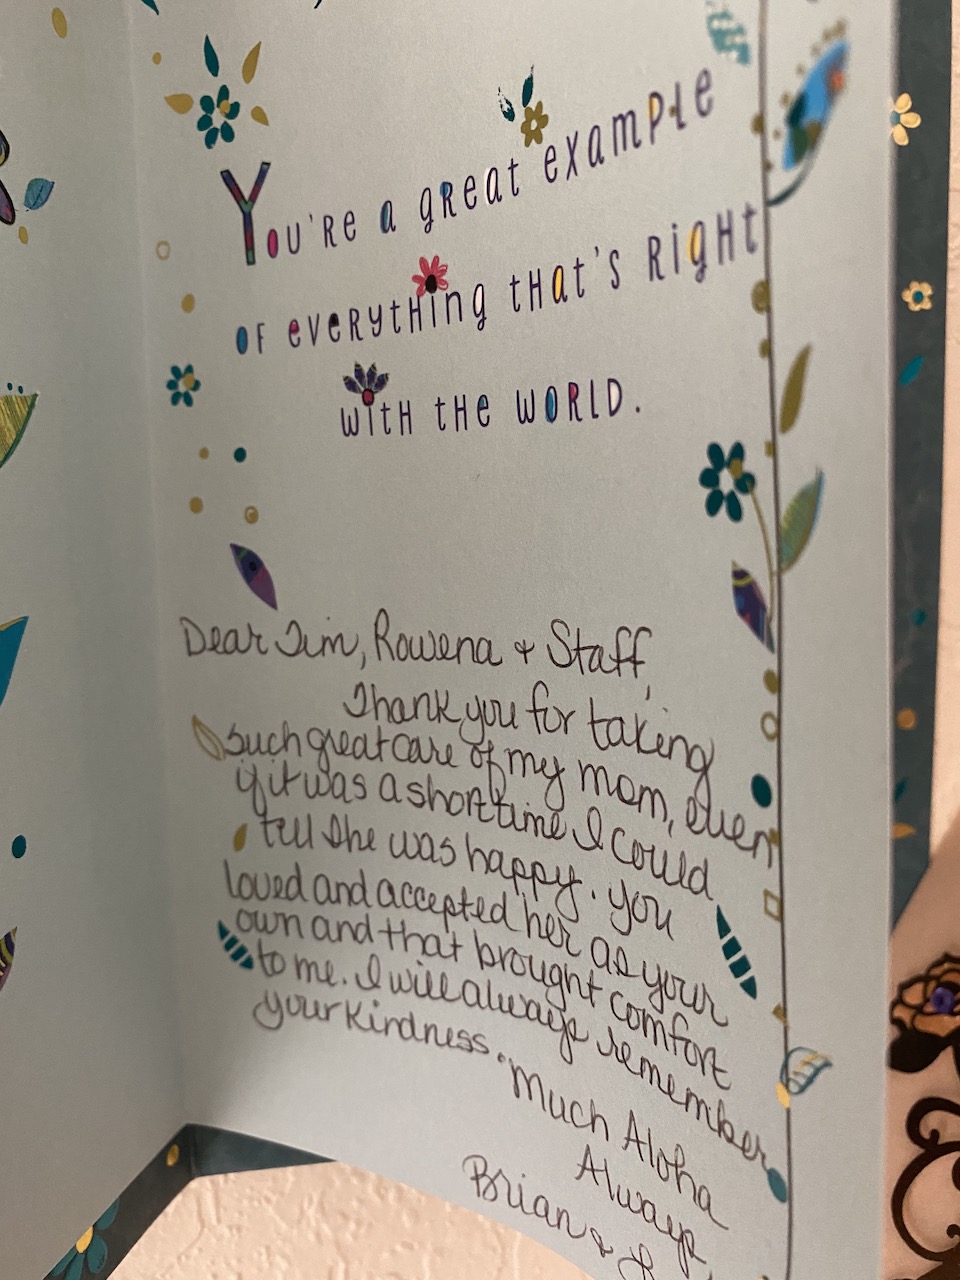 You're a great example
of everything that's right
with the world.
Dear Jim, Rowena & Staff,
Thank you for taking
such great care of my mom, even
if it was a short time I could
tell she was happy. You
loved and accepted her as your
own and that brought comfort
to me. I will always remember
your kindness.
Much Aloha
Always,
Brian &